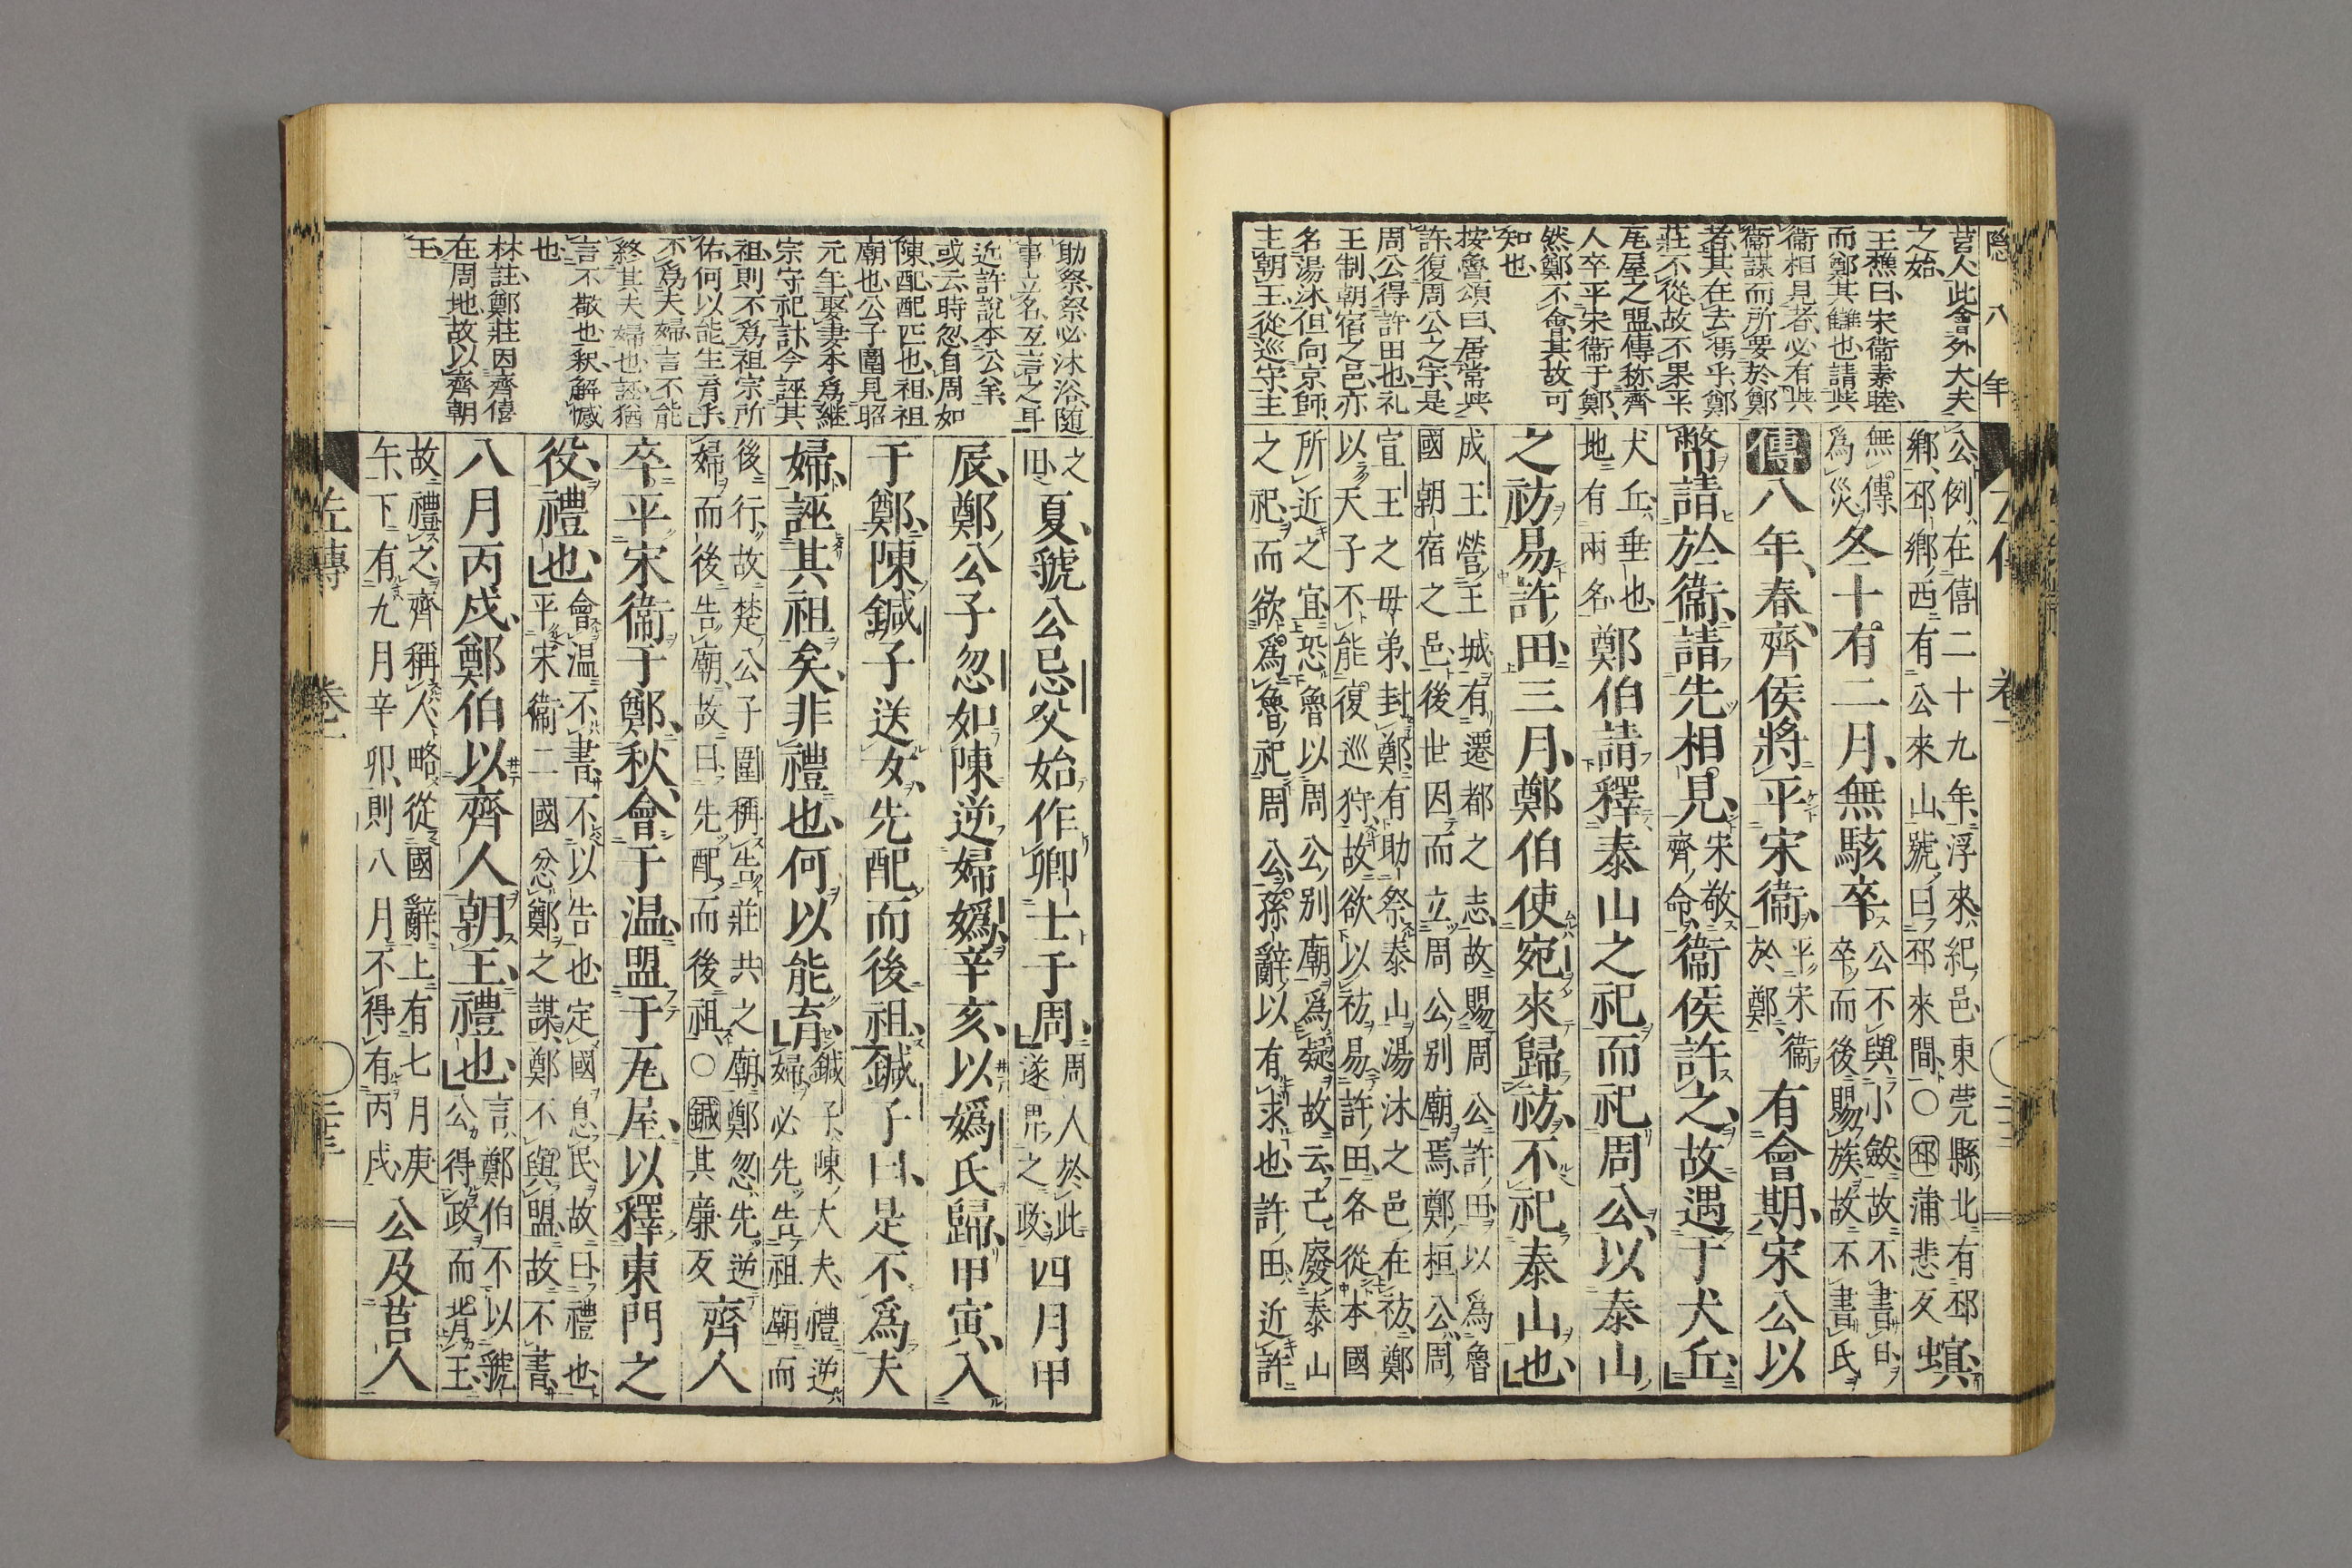 隠八年
莒人此會外大夫
之始
王樵曰宋衞素睦
而鄭其讎也請與
衞相見者必有與
衞謀而所要於鄭
者其在去馮乎鄭
莊不從故不果平
瓦屋之盟傳称齊
人卒平宋衞于鄭
然鄭不會其故可
知也
按魯頌曰居常與
許復周公之宇是
周公得許田也礼
王制朝宿之邑亦
名湯沐但向京師
主朝王從巡守主
公例在僖二十九年浮來紀邑東莞縣北有邳
鄉邳鄉西有公來山號曰邳來間○邳蒲悲反螟
無傳爲災冬十有二月無駭卒公不與小斂故不書日卒而後賜族故不書氏
傳八年春齊侯將平宋衞平宋衞於鄭有會期宋公以
幣請於衞請先相見宋敬齊命衞侯許之故遇于犬丘
犬丘垂也地有兩名鄭伯請釋泰山之祀而祀周公以泰山
之祊易許田三月鄭伯使宛來歸祊不祀泰山也
成王營王城有遷都之志故賜周公許田以爲魯
國朝宿之邑後世因而立周公別廟焉鄭桓公周
宣王之母弟封鄭有助祭泰山湯沐之邑在祊鄭
以天子不能復巡狩故欲以祊易許田各從本國
所近之宜恐魯以周公別廟爲疑故云已廢泰山
之祀而欲爲魯祀周公孫辭以有求也許田近許
助祭祭必沐浴随
事立名互言之耳
近許說本公羊
或云時忽自周如
陳配配匹也祖祖
廟也公子圍見昭
元年娶妻本爲継
宗守祀計今誣其
祖則不爲祖宗所
佑何以能生育乎
不爲夫婦言不能
終其夫婦也誣猶
言不敬也釈解憾
也
林註鄭莊因齊僖
在周地故以齊朝
王
之田夏虢公忌父始作卿士于周周人於此遂畀之政四月甲
辰鄭公子忽如陳逆婦嬀辛亥以嬀氏歸甲寅入
于鄭陳鍼子送女先配而後祖鍼子曰是不爲夫
婦誣其祖矣非禮也何以能育鍼子陳大夫禮逆婦必先告祖廟而
後行故楚公子圍稱告莊共之廟鄭忽先逆
婦而後告廟故曰先配而後祖○鍼其廉反齊人
卒平宋衞于鄭秋會于温盟于瓦屋以釋東門之
役禮也會温不書不以告也定國息民故曰禮也平宋衞二國忿鄭之謀鄭不與盟故不書
八月丙戌鄭伯以齊人朝王禮也言鄭伯不以虢公得政而背王
故禮之齊稱人略從國辭上有七月庚
午下有九月辛卯則八月不得有丙戌公及莒人
左傳
卷一